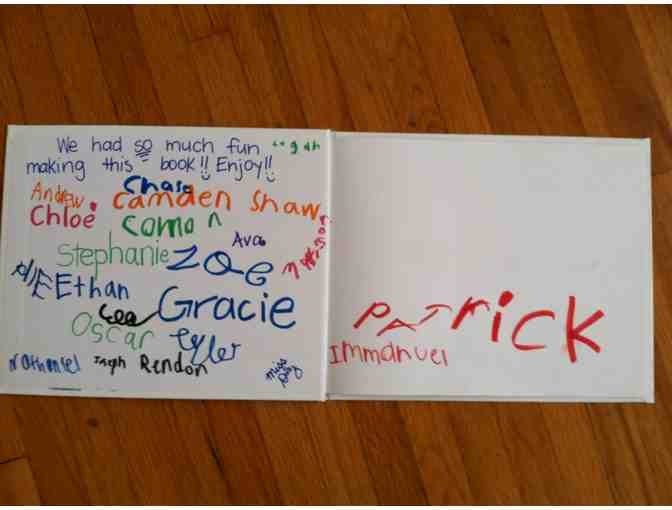 We had so much fun
making this book!! Enjoy!!
Chase
Andrew Camden Shaw
Chloe Coman
Ava
Stephanie Zoe
Ethan
Gracie
Lee
Oscar Tyler
Nathaniel Joseph Rendon
Miss
PATRICK
Immanuel